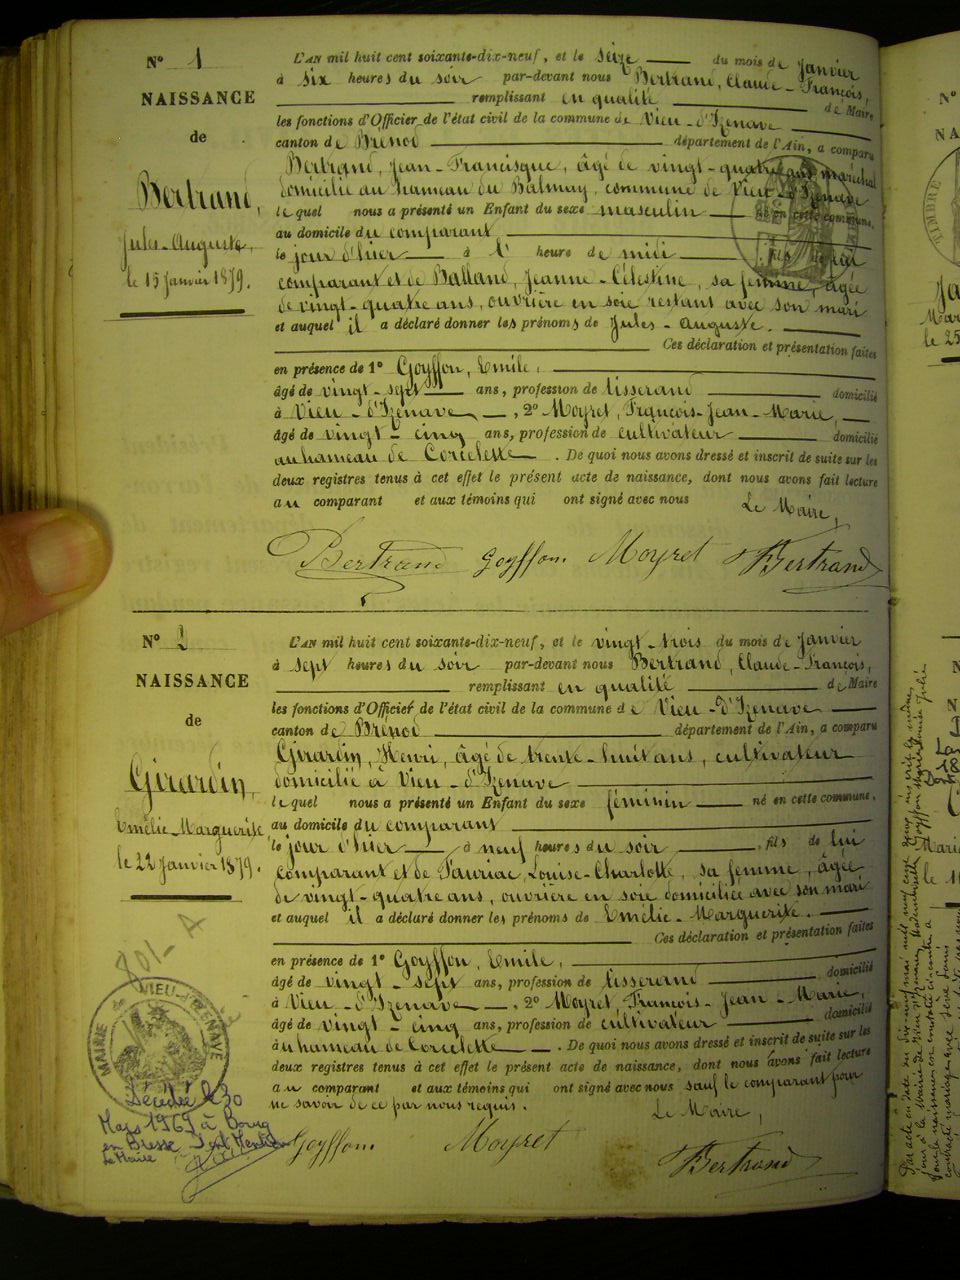 N° 1
NAISSANCE
de
Bertrand,
Jules-Auguste,
le 15 Janvier 1879.
L'AN mil huit cent soixante-dix-neuf, et le seize du mois de Janvier
à six heures du soir par-devant nous Bertrand, Claude-François,
remplissant en qualité de Maire
les fonctions d'Officier de l'état civil de la commune de Vieu-d'Izenave
canton de Brénod département de l'Ain, a comparu
Bertrand, Jean-Francisque, âgé de vingt-quatre ans, maréchal
domicilié au hameau du Balmay, commune de Vieu-d'Izenave
lequel nous a présenté un Enfant du sexe masculin né en cette commune,
au domicile du comparant
le jour d'hier à l' heure de midi fils de lui
comparant et de Balland, Jeanne-Célestine, sa femme, âgée
de vingt-quatre ans, ouvrière en soie restant avec son mari
et auquel il a déclaré donner les prénoms de Jules-Auguste.
Ces déclaration et présentation faites
en présence de 1° Goyffon, Emile,
âgé de vingt-sept ans, profession de tisserand domicilié
à Vieu-d'Izenave, 2° Moyret, François-Jean-Marie,
âgé de vingt-cinq ans, profession de cultivateur domicilié
au hameau de Corcelette. De quoi nous avons dressé et inscrit de suite sur les
deux registres tenus à cet effet le présent acte de naissance, dont nous avons fait lecture
au comparant et aux témoins qui ont signé avec nous
Le Maire,
Bertrand Goyffon Moyret Bertrand
N° 2
NAISSANCE
de
Girardin,
Emélie-Marguerite
le 22 Janvier 1879.
L'AN mil huit cent soixante-dix-neuf, et le vingt-trois du mois de Janvier
à sept heures du soir par-devant nous Bertrand, Claude-François,
remplissant en qualité de Maire
les fonctions d'Officier de l'état civil de la commune de Vieu-d'Izenave
canton de Brénod département de l'Ain, a comparu
Girardin, Henri, âgé de trente-huit ans, cultivateur
domicilié à Vieu-d'Izenave
lequel nous a présenté un Enfant du sexe féminin né en cette commune,
au domicile du comparant
le jour d'hier à neuf heures du soir, fils de lui
comparant et de Pauriac, Louise-Charlotte, sa femme, âgée
de vingt-quatre ans, ouvrière en soie domiciliée avec son mari
et auquel il a déclaré donner les prénoms de Emélie-Marguerite.
Ces déclaration et présentation faites
en présence de 1° Goyffon, Emile,
âgé de vingt-sept ans, profession de tisserand domicilié
à Vieu-d'Izenave, 2° Moyret, François-Jean-Marie,
âgé de vingt-cinq ans, profession de cultivateur domicilié
au hameau de Corcelette. De quoi nous avons dressé et inscrit de suite sur les
deux registres tenus à cet effet le présent acte de naissance, dont nous avons fait lecture
au comparant et aux témoins qui ont signé avec nous sauf le comparant pour
ne savoir de ce par nous requis.
Le Maire,
Goyffon Moyret Bertrand
801-A
MAIRIE de VIEU-D'IZENAVE
Décédée le 30
Mars 1969 à Bourg
en Bresse
Le Maire
N°
NA
TIMBRE
le 25